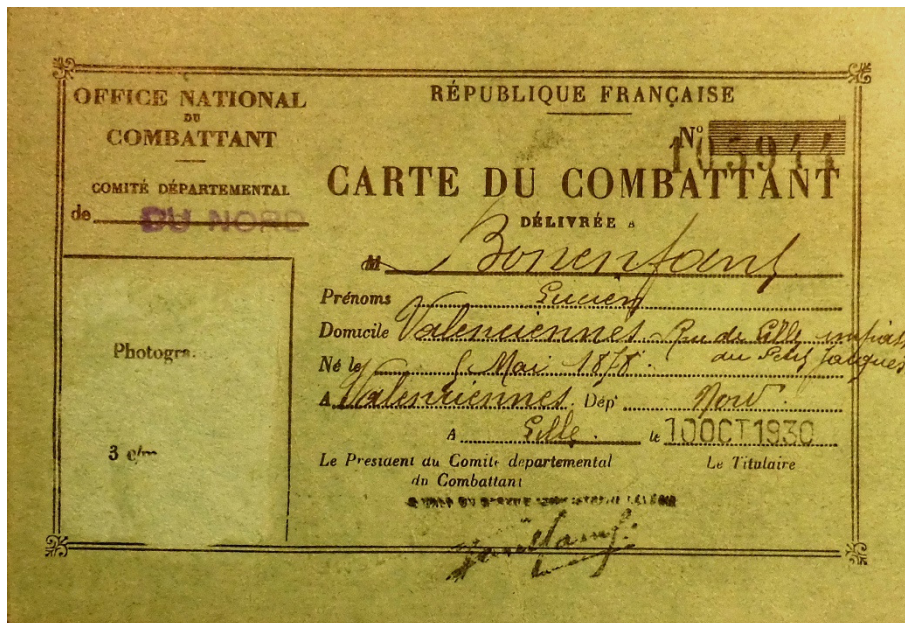 OFFICE NATIONAL
DU
COMBATTANT
COMITÉ DÉPARTEMENTAL
de DU NORD
Photogra
3 c/m
RÉPUBLIQUE FRANÇAISE
N° 105944
CARTE DU COMBATTANT
DÉLIVRÉE A
M Bonenfant
Prénoms Lucien
Domicile Valenciennes Rue de Lille impasse
du Petit Jacques
Né le 5 Mai 1878
A Valenciennes Dépt Nord
A Lille le 10 OCT 1930
Le Président du Comité départemental
du Combattant
Le Titulaire